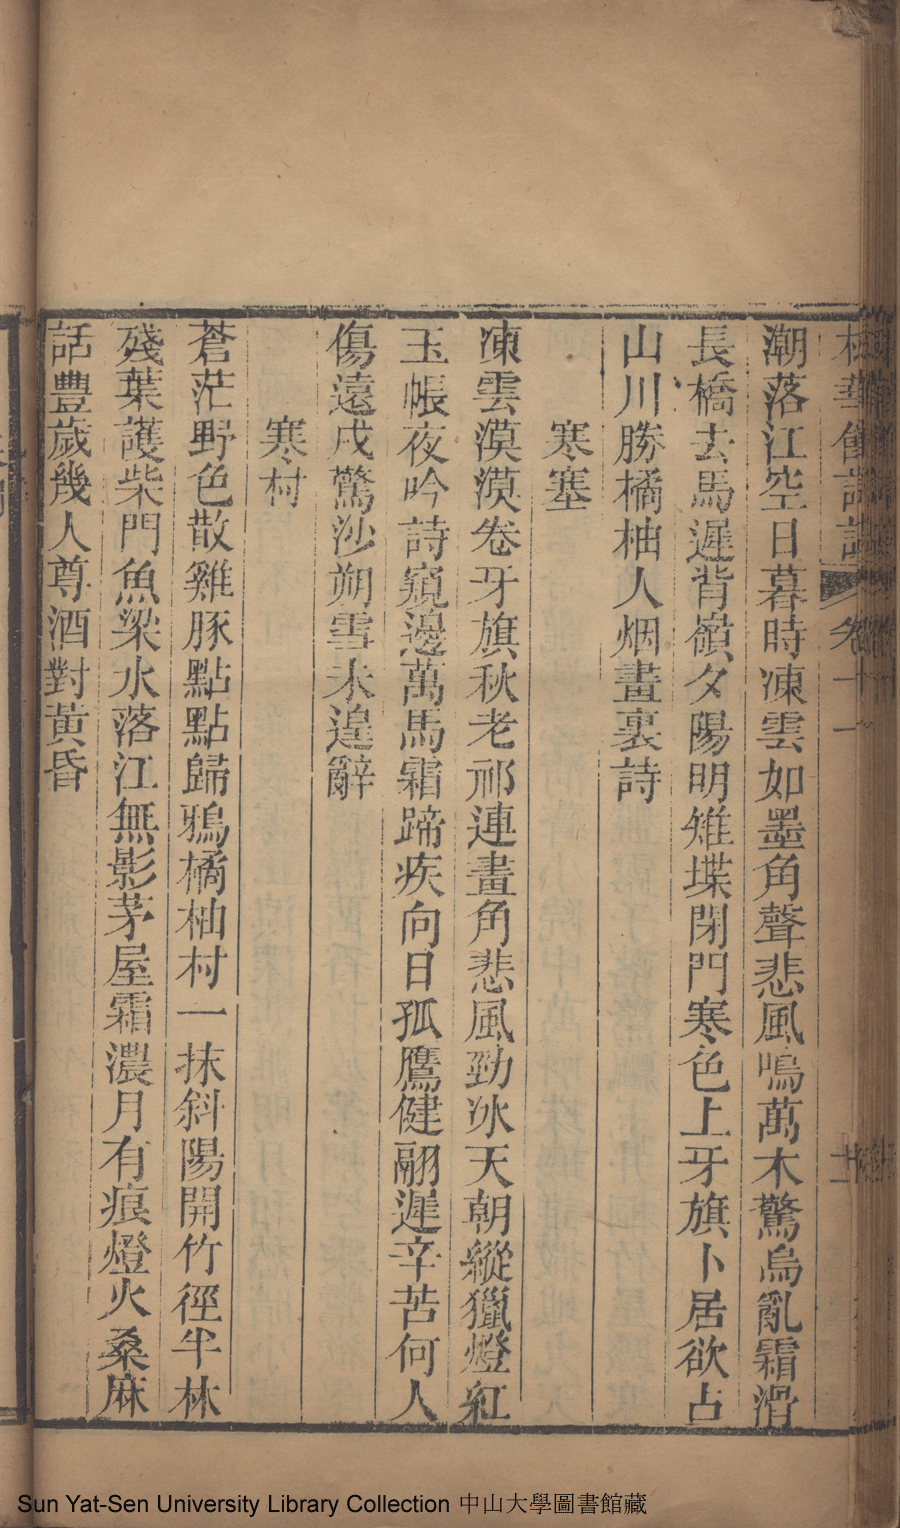 潮落江空日暮時凍雲如墨角聲悲風鳴萬木驚烏亂霜滑
長橋去馬遲背嶺夕陽明雉堞閉門寒色上牙旗卜居欲占
山川勝橘柚人烟畫裏詩
寒塞
凍雲漠漠卷牙旗秋老祁連畫角悲風勁冰天朝縱獵燈紅
玉帳夜吟詩窺邊萬馬霜蹄疾向日孤鷹健翮遲辛苦何人
傷遠戍驚沙朔雪未遑辭
寒村
蒼茫野色散雞豚點點歸鴉橘柚村一抹斜陽開竹徑半林
殘葉護柴門魚梁水落江無影茅屋霜濃月有痕燈火桑麻
話豐歲幾人尊酒對黃昏
Sun Yat-Sen University Library Collection 中山大學圖書館藏